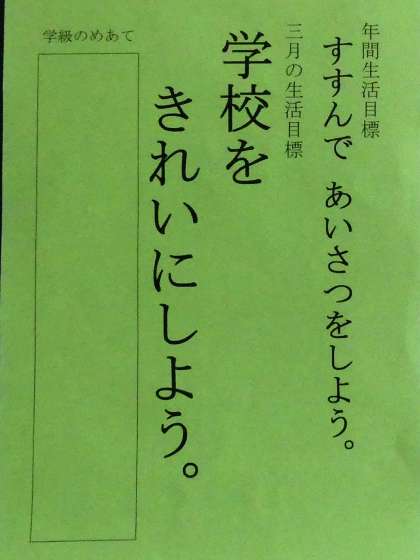 年間生活目標
すすんで あいさつをしよう。
三月の生活目標
学校を
きれいにしよう。
学級のめあて